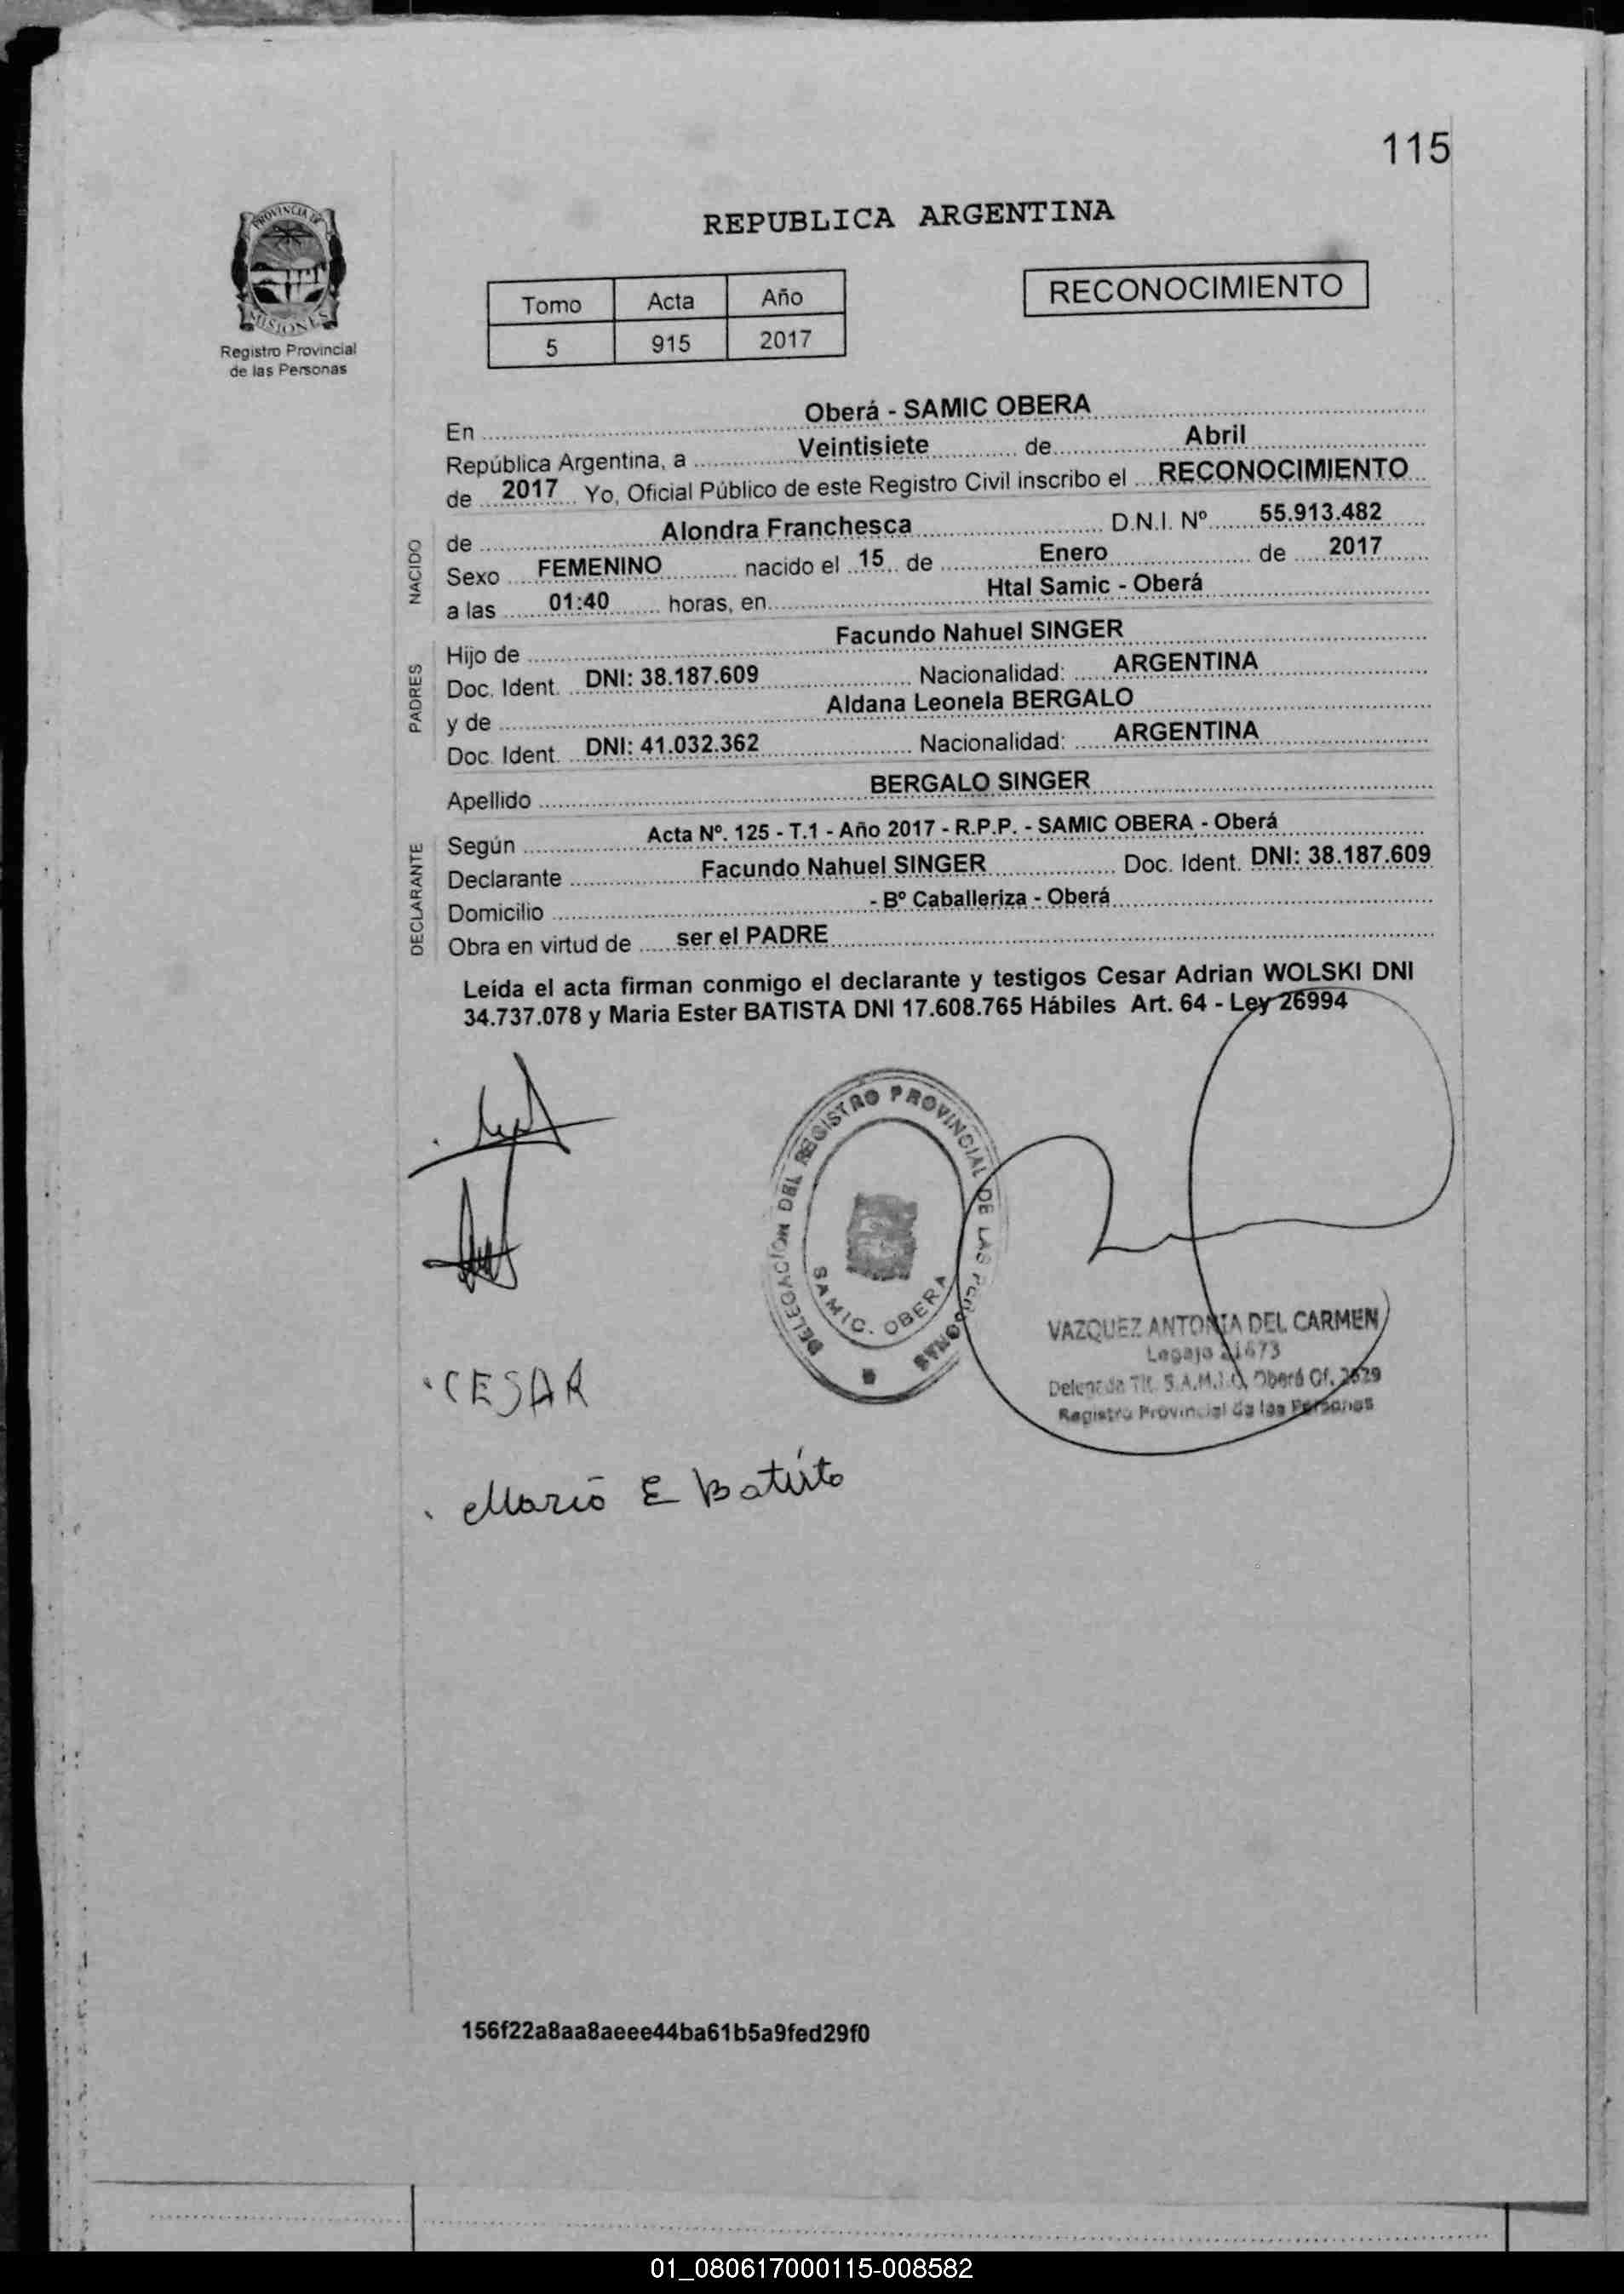 115
PROVINCIA DE
MISIONES
Registro Provincial
de las Personas
REPUBLICA ARGENTINA
Tomo Acta Año
5 915 2017
RECONOCIMIENTO
En Oberá - SAMIC OBERA
República Argentina, a Veintisiete de Abril
de 2017 Yo, Oficial Público de este Registro Civil inscribo el RECONOCIMIENTO
NACIDO
de Alondra Franchesca D.N.I. Nº 55.913.482
Sexo FEMENINO nacido el 15 de Enero de 2017
a las 01:40 horas, en Htal Samic - Oberá
PADRES
Hijo de Facundo Nahuel SINGER
Doc. Ident. DNI: 38.187.609 Nacionalidad: ARGENTINA
y de Aldana Leonela BERGALO
Doc. Ident. DNI: 41.032.362 Nacionalidad: ARGENTINA
Apellido BERGALO SINGER
DECLARANTE
Según Acta Nº. 125 - T.1 - Año 2017 - R.P.P. - SAMIC OBERA - Oberá
Declarante Facundo Nahuel SINGER Doc. Ident. DNI: 38.187.609
Domicilio - Bº Caballeriza - Oberá
Obra en virtud de ser el PADRE
Leída el acta firman conmigo el declarante y testigos Cesar Adrian WOLSKI DNI
34.737.078 y Maria Ester BATISTA DNI 17.608.765 Hábiles Art. 64 - Ley 26994
DELEGACION DEL REGISTRO PROVINCIAL DE LAS PERSONAS
SAMIC. OBERA
VAZQUEZ ANTONIA DEL CARMEN
Legajo
Delegada Tit. S.A.M.I.C. Oberá Of. 2629
Registro Provincial de las Personas
CESAR
Maria E Batista
156f22a8aa8aeee44ba61b5a9fed29f0
01_080617000115-008582